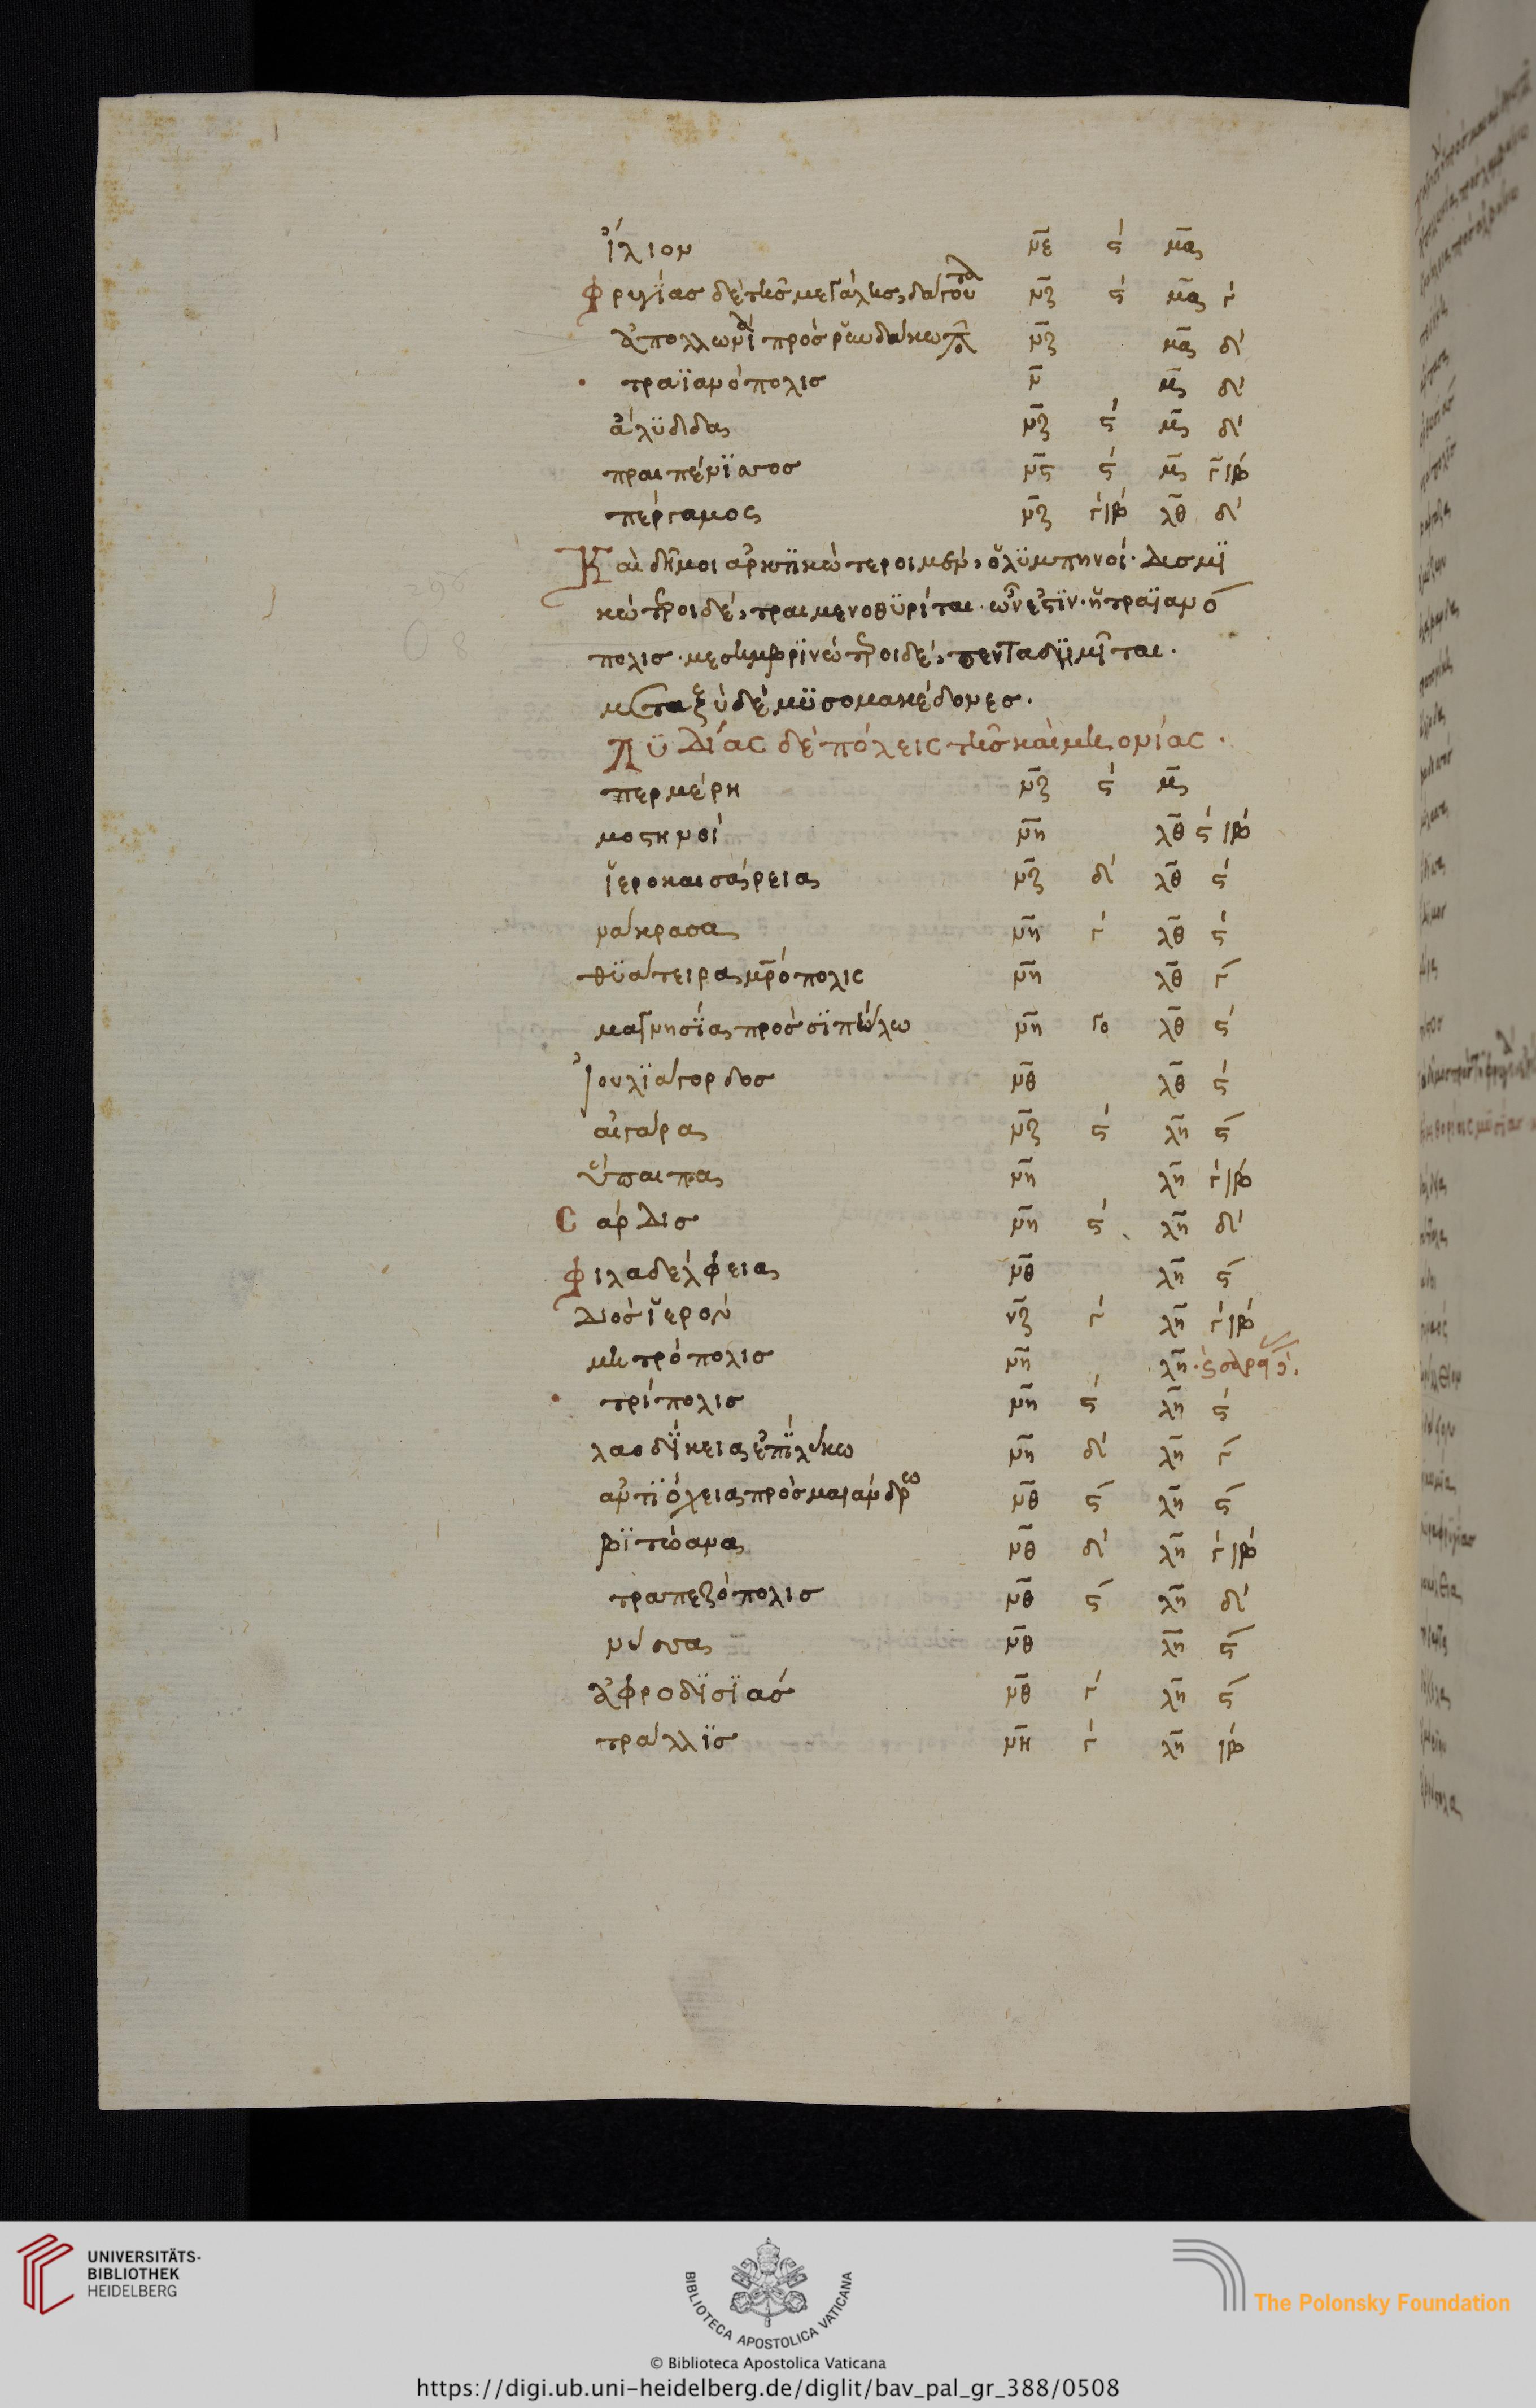 ἴλιον νε ς΄ μα
Φρυγίας δὲ τῆς μεγάλης, δάγουτα νζ ς΄ μα γ΄
ἀπολλωνία πρὸς ῥυνδάκω νζ μα δ΄
τραϊανόπολις ν μ δ΄
ἀλϋδδα νζ ς΄ μ δ΄
πραιπένϊσσος νς ς΄ μ γ΄ιβ΄
πέργαμος νζ γ΄ιβ΄ λθ δ΄
Καὶ δῆμοι ἀρκτϊκώτεροι μὲν, ὀλϋμπηνοί· δυσμϊ
κώτεροι δὲ, τραιμενοθϋρίται· ὧν ἐστϊν· ἡ τραϊανό
πολις· μεσημβρϊνώτεροι δὲ, πενταδημῖται·
μεταξὺ δὲ μϋσομακέδονες·
Λϋδίας δὲ πόλεις τῆς καὶ μηονίας·
περμέρη νζ ς΄ μ
μοστηνοί νη λθ ς΄ιβ΄
ἱεροκαισάρεια νζ δ΄ λθ ς΄
νάκρασα νη γ΄ λθ ς΄
θϋάτειρα μρόπολις νη λθ γ΄
μαγνησία πρὸς σϊπύλω νη γο λθ ς΄
ἰουλϊάγορδος νθ λθ ς΄
αἰγάρα νζ ς΄ λη ς΄
ὕπαιπα νη λη γ΄ιβ΄
Σάρδις νη ς΄ λη δ΄
Φιλαδέλφεια νθ λη ς΄
Διὸς ἱερόν νζ γ΄ λη γ΄ιβ΄
μητρόπολις νη λη
τρίπολις νη ς΄ λη ς΄
λαοδίκεια ἐπὶ λύκω νη δ΄ λη γ΄
ἀντϊόχεια πρὸς μαιάνδρω νθ ς΄ λη ς΄
βϊτόανα νθ δ΄ λη γ΄ιβ΄
τραπεζόπολις νθ ς΄ λη δ΄
νύσσα νθ λη ς΄
ἀφροδϊσϊάς νθ γ΄ λη ς΄
τράλλϊς νη γ΄ λη ιβ΄
UNIVERSITÄTS-
BIBLIOTHEK
HEIDELBERG
BIBLIOTECA APOSTOLICA VATICANA
The Polonsky Foundation
© Biblioteca Apostolica Vaticana
https://digi.ub.uni-heidelberg.de/diglit/bav_pal_gr_388/0508